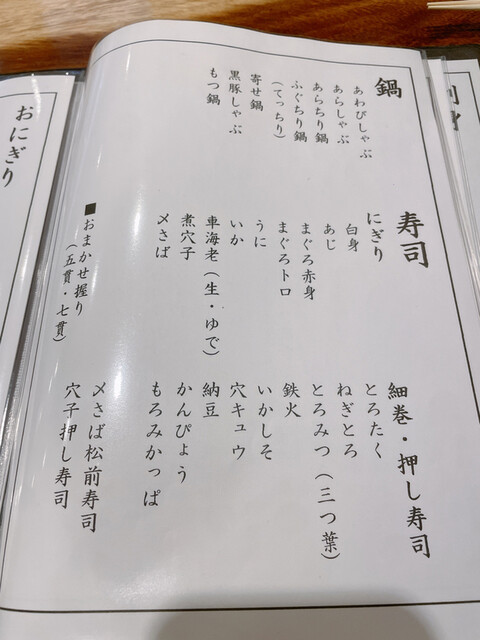 鍋
あわびしゃぶ
あらしゃぶ
あらちり鍋
ふぐちり鍋
(てっちり)
寄せ鍋
黒豚しゃぶ
もつ鍋
寿司
にぎり
白身
あじ
まぐろ赤身
まぐろトロ
うに
いか
車海老(生・ゆで)
煮穴子
〆さば
■おまかせ握り
(五貫・七貫)
細巻・押し寿司
とろたく
ねぎとろ
とろみつ(三つ葉)
鉄火
いかしそ
穴キュウ
納豆
かんぴょう
もろみかっぱ
〆さば松前寿司
穴子押し寿司
おにぎり